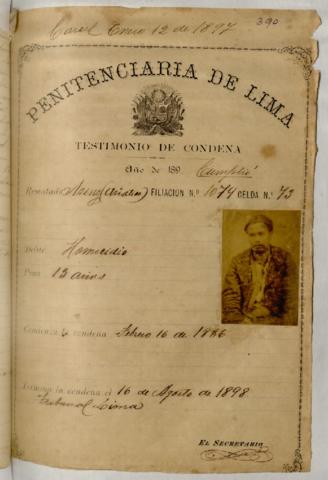 Carcel Enero 12 de 1897
390
PENITENCIARIA DE LIMA
TESTIMONIO DE CONDENA
Año de 189 Cumplió
Rematado FILIACIUN N.º 1074 CELDA N.º 73
Delito Homicidio
Pena 13 años
Comienza la condena Febrero 16 de 1886
Termina la condena el 16 de Agosto de 1898
Tribunal Lima
EL SECRETARIO